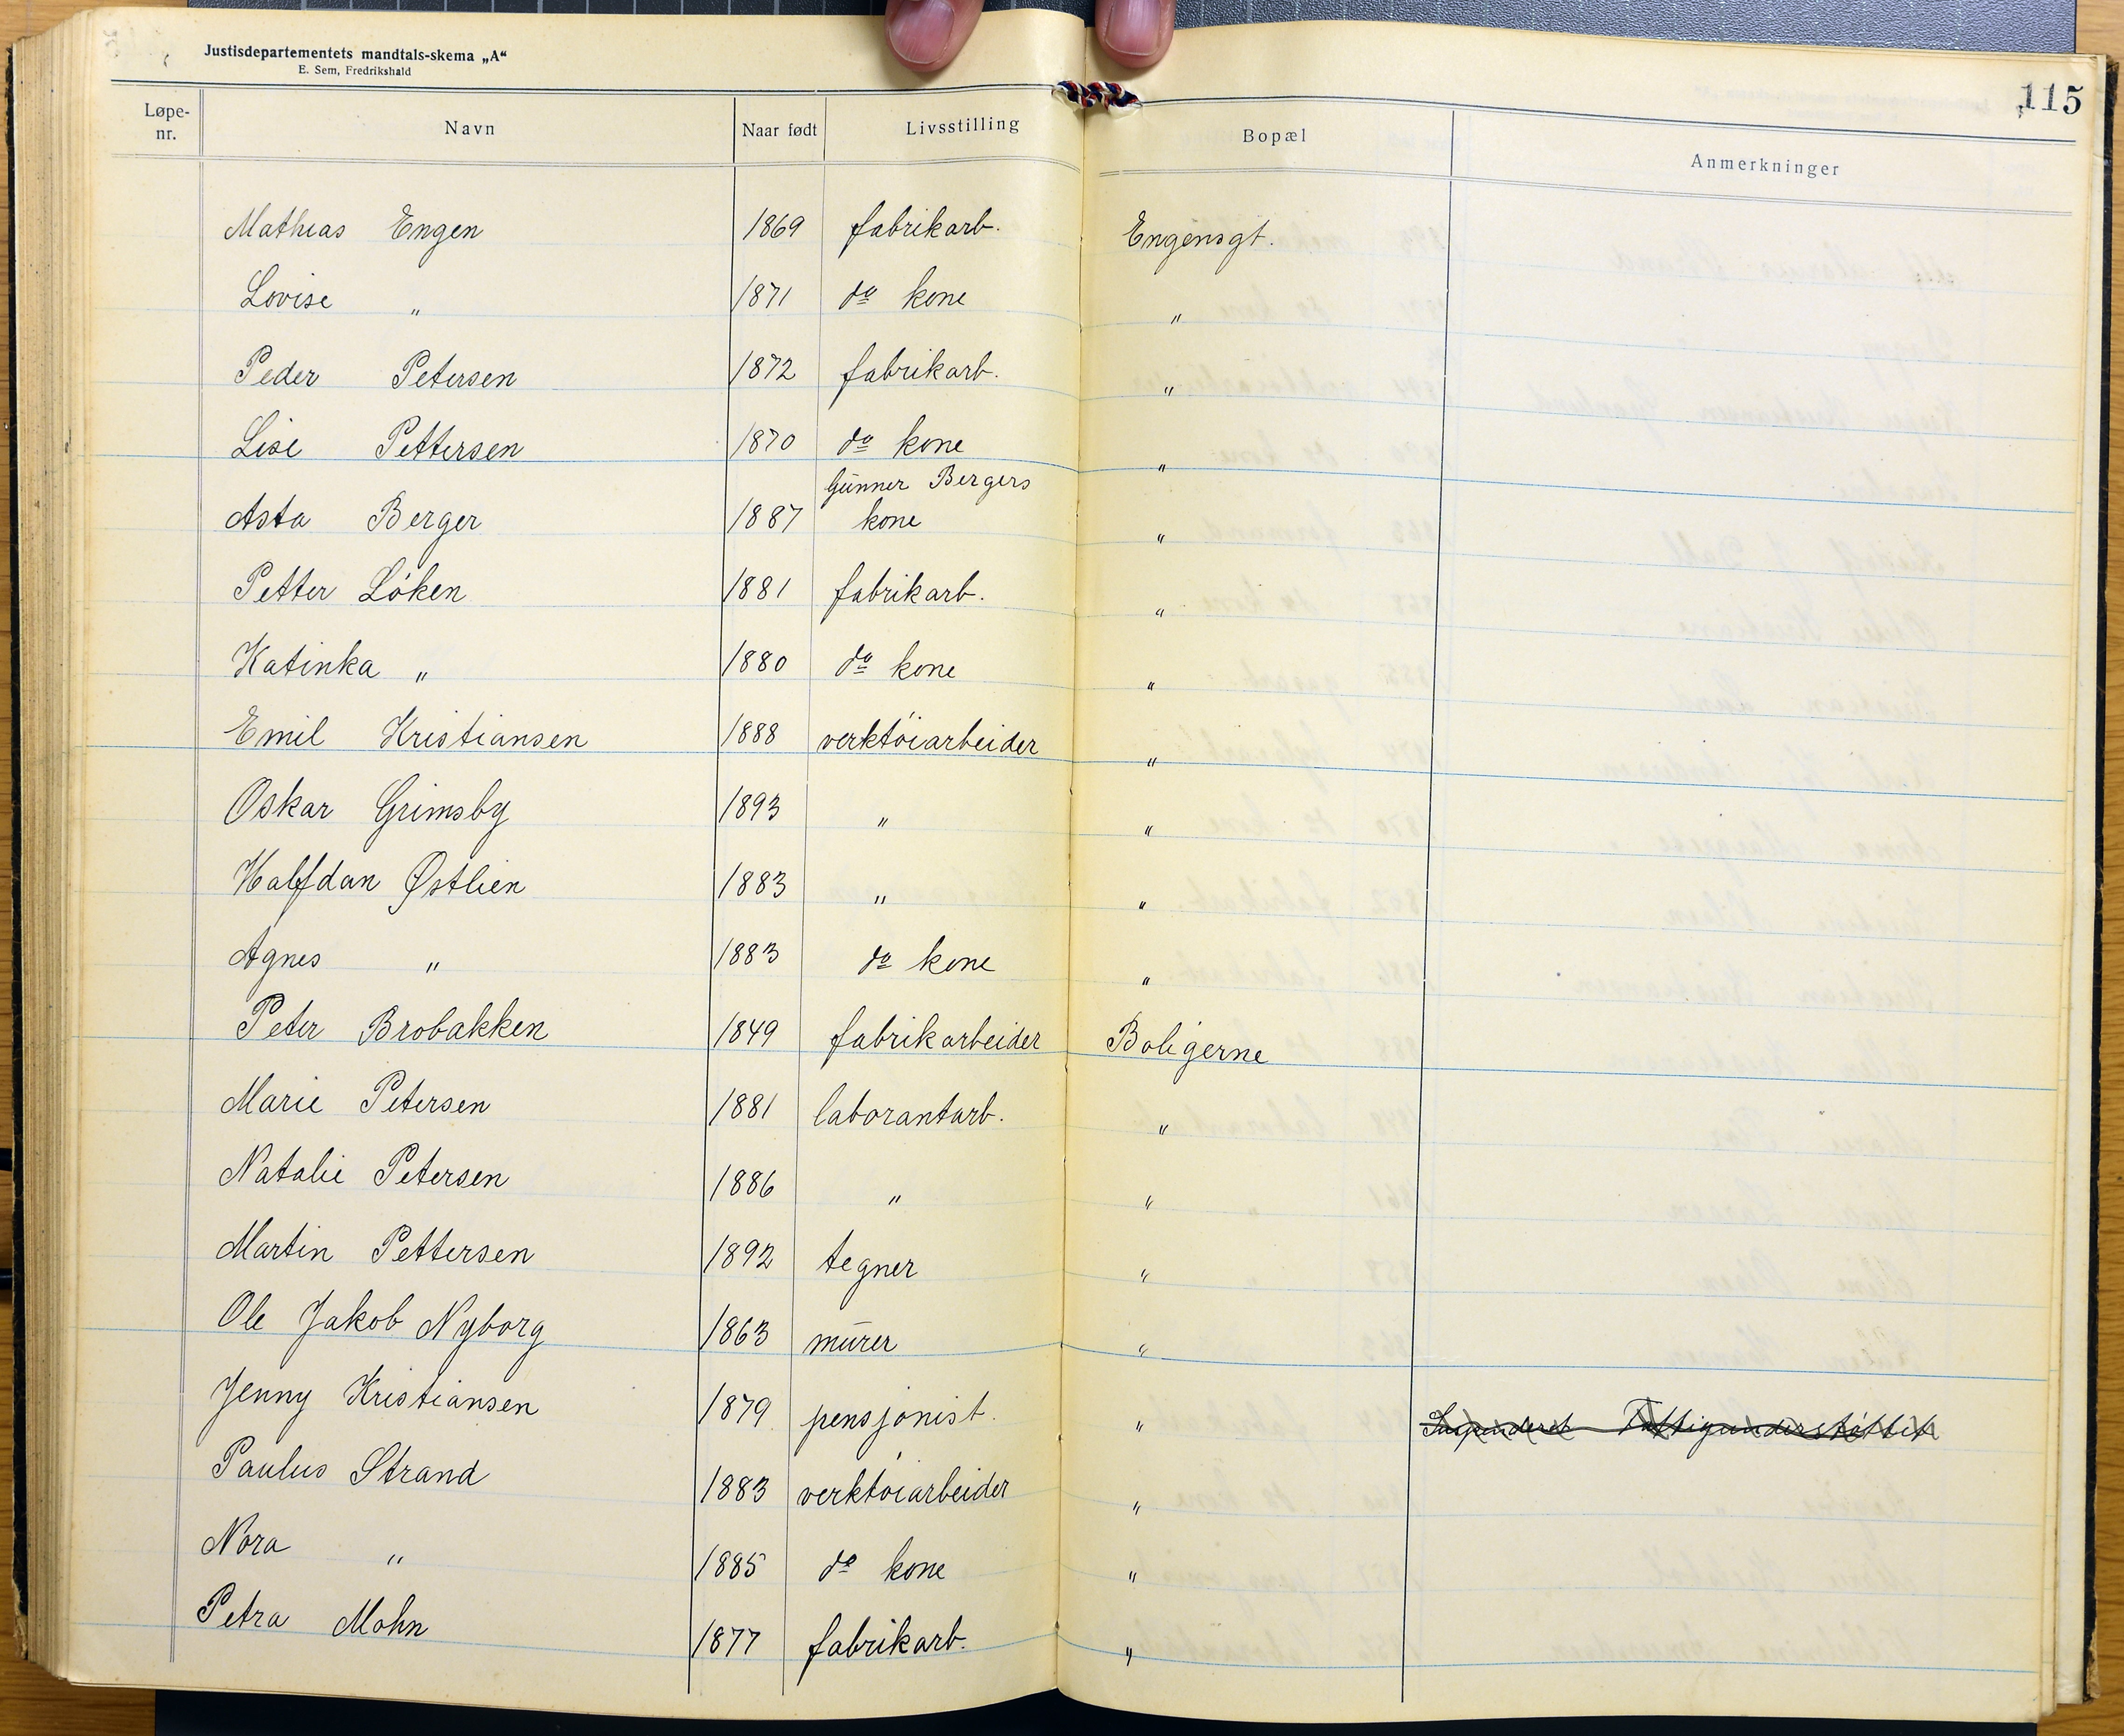 Justisdepartementets mandtals-skema „A“
E. Sem, Fredrikshald
115
Løpe-nr. Navn Naar født Livsstilling Bopæl Anmerkninger
Mathias Engen 1869 fabrikarb. Engensgt.
Lovise " 1871 do kone "
Peder Petersen 1872 fabrikarb. "
Lise Pettersen 1870 do kone "
Gunner Bergers
Asta Berger 1887 kone "
Petter Löken 1881 fabrikarb. "
Katinka " 1880 do kone "
Emil Kristiansen 1888 verktöiarbeider "
Oskar Grimsby 1893 " "
Halfdan Østlien 1883 " "
Agnes " 1883 do kone "
Peter Brobakken 1849 fabrikarbeider Boligerne
Marie Petersen 1881 laborantarb. "
Natalie Petersen 1886 " "
Martin Pettersen 1892 tegner "
Ole Jakob Nyborg 1863 murer "
Jenny Kristiansen 1879 pensjonist. " Suspenderet Fattigunderstøttet
Paulus Strand 1883 verktöiarbeider "
Nora " 1885 do kone "
Petra Mohn 1877 fabrikarb. "